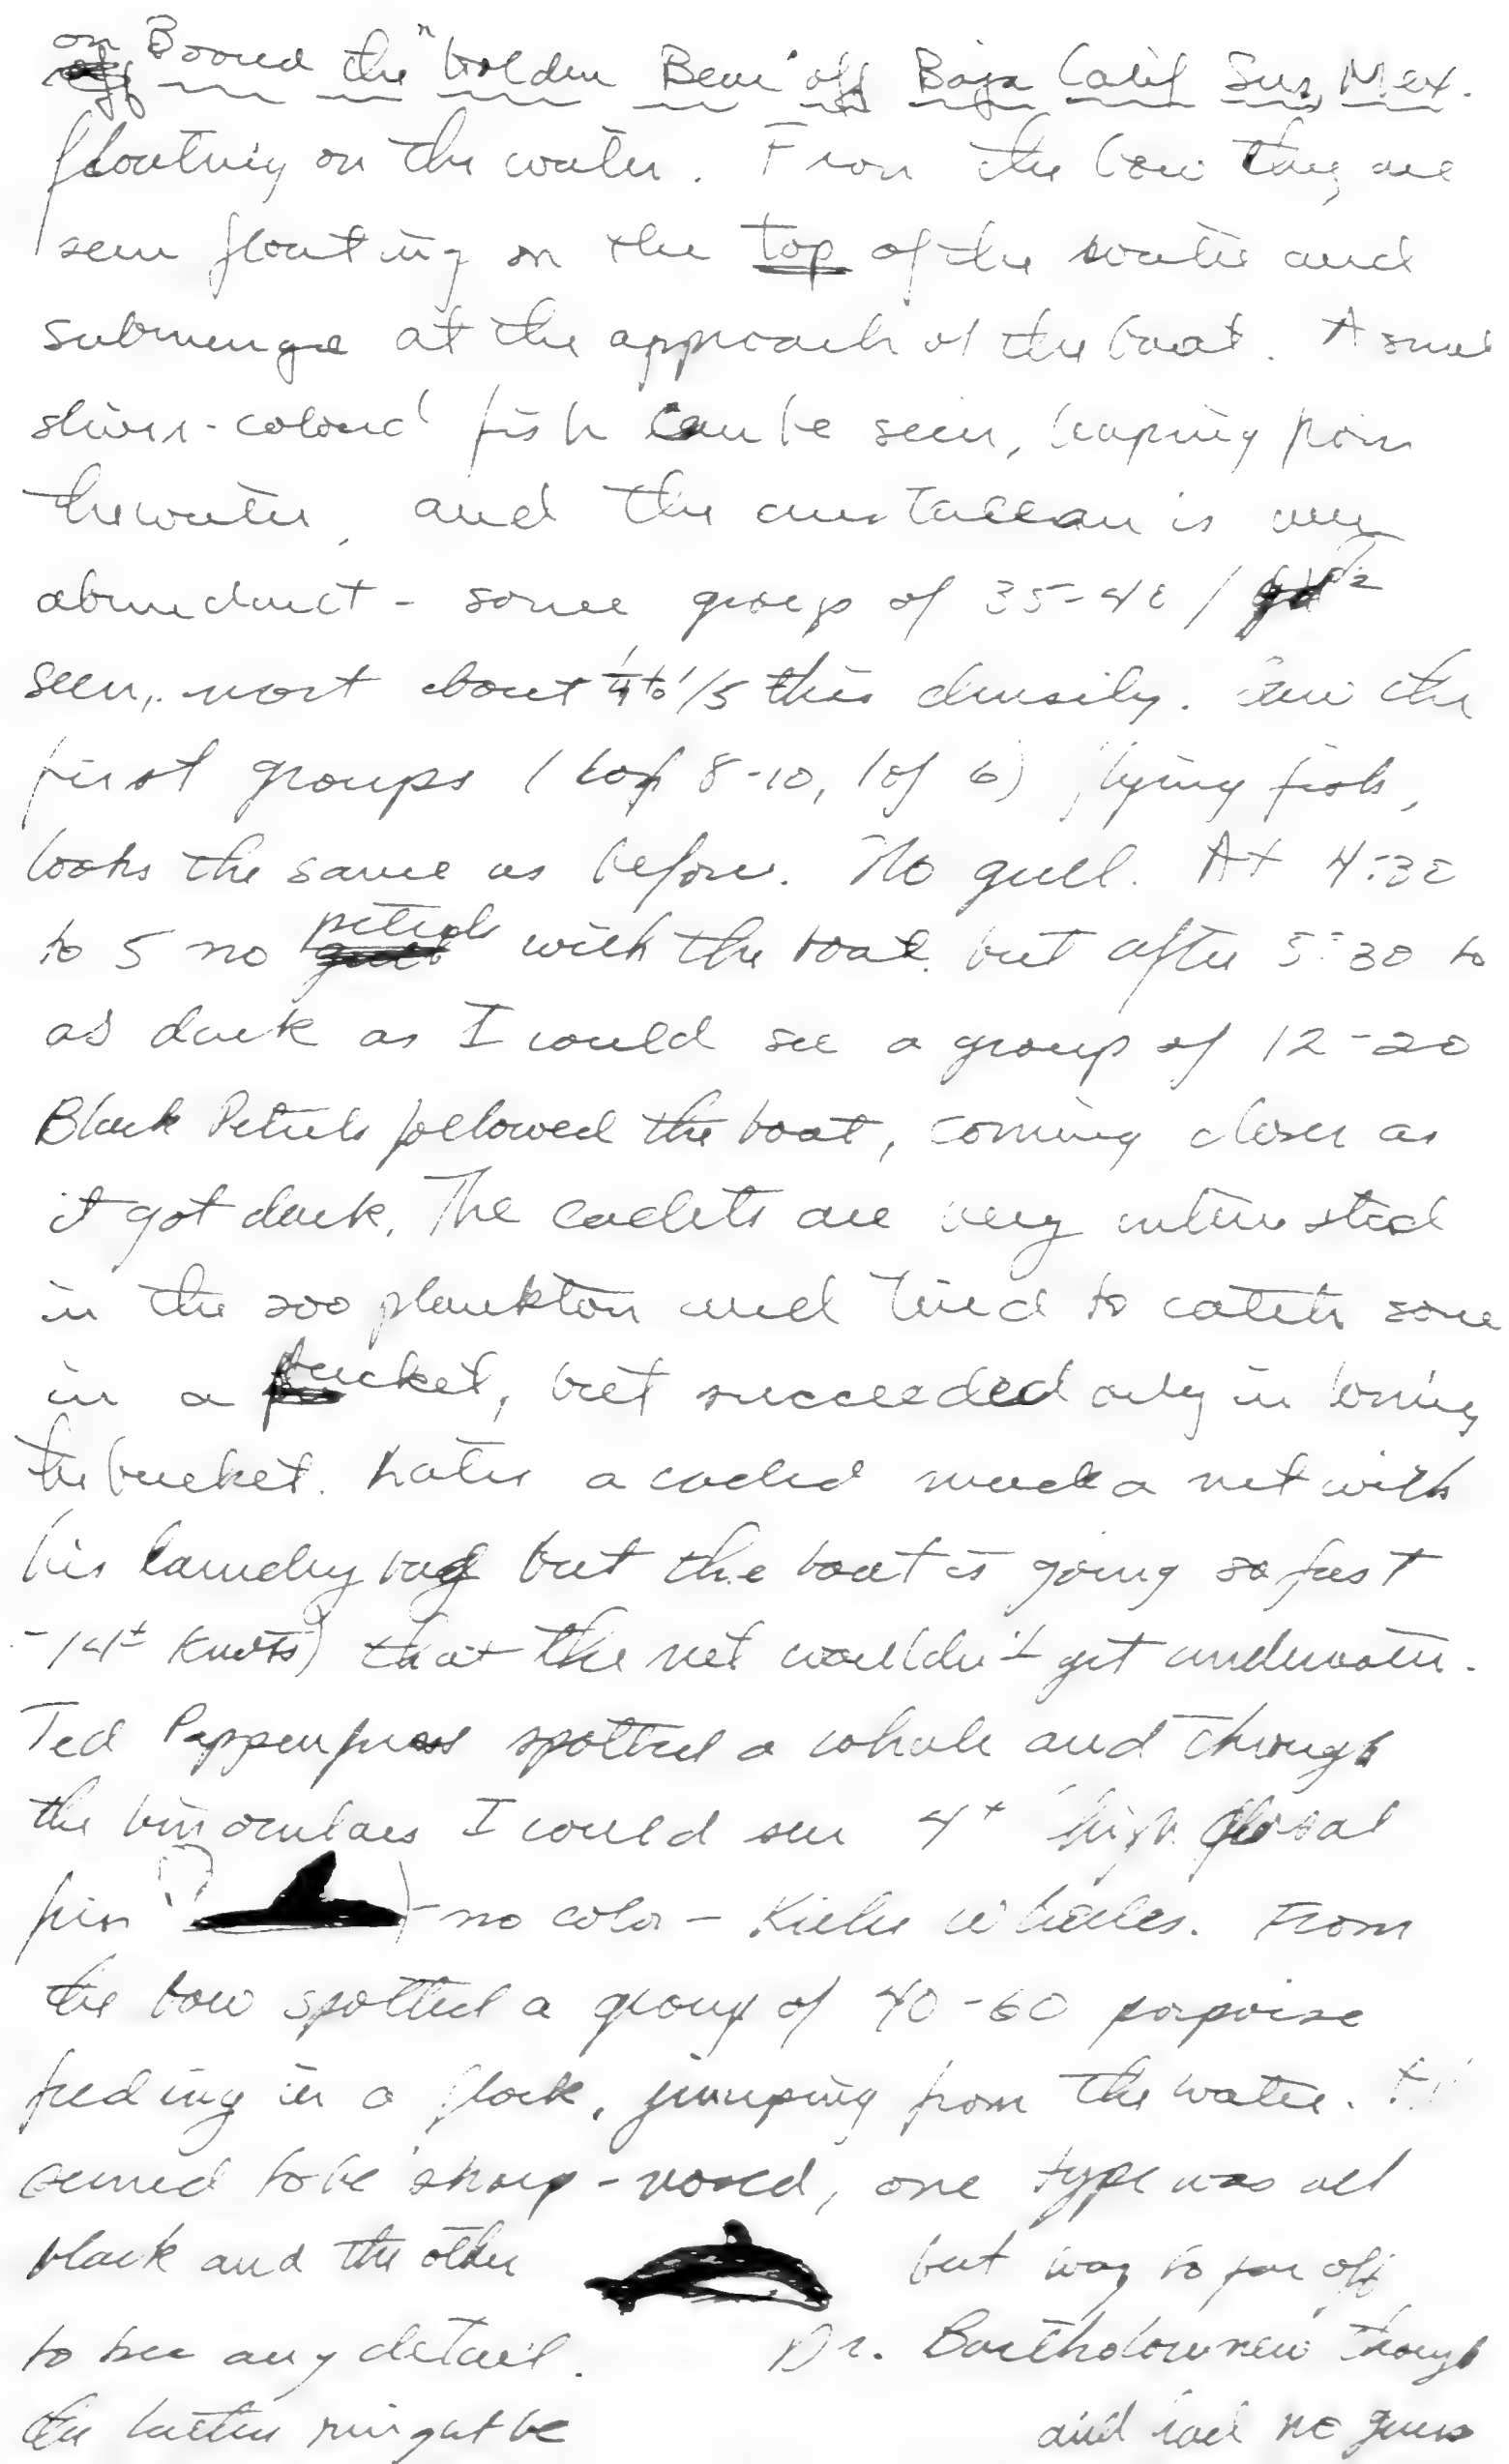 on Board the "Golden Bear" off Baja Calif Sur, Mex.
floating on the water. From the bow they are
seen floating on the top of the water and
submerge at the approach of the boat. A small
silver-colored fish can be seen, leaping from
the water, and the crustacean is very
abundant - some group of 35-40 /
seen, most about 1/4 to 1/5 this density. Saw the
first groups (1 of 8-10, 1 of 6) flying fish,
looks the same as before. No gull. At 4:30
to 5 no petrels with the boat but after 5:30 to
as dark as I could see a group of 12-20
Black Petrels followed the boat, coming closer as
it got dark. The cadets are very interested
in the zooplankton and tried to catch some
in a bucket, but succeeded only in losing
the bucket. Later a cadet made a net with
his laundry bag but the boat is going so fast
- 14± knots) that the net wouldn't get underwater.
Ted Pappenfuss spotted a whale and through
the binoculars I could see 4+ ' high dorsal
fin - no color - Killer Whales. From
the bow spotted a group of 40-60 porpoise
feeding in a flock, jumping from the water.
seemed to be sharp-nosed, one type was all
black and the other but way to far off
to see any detail. Dr. Bartholomew though
the latter might be and had no guess